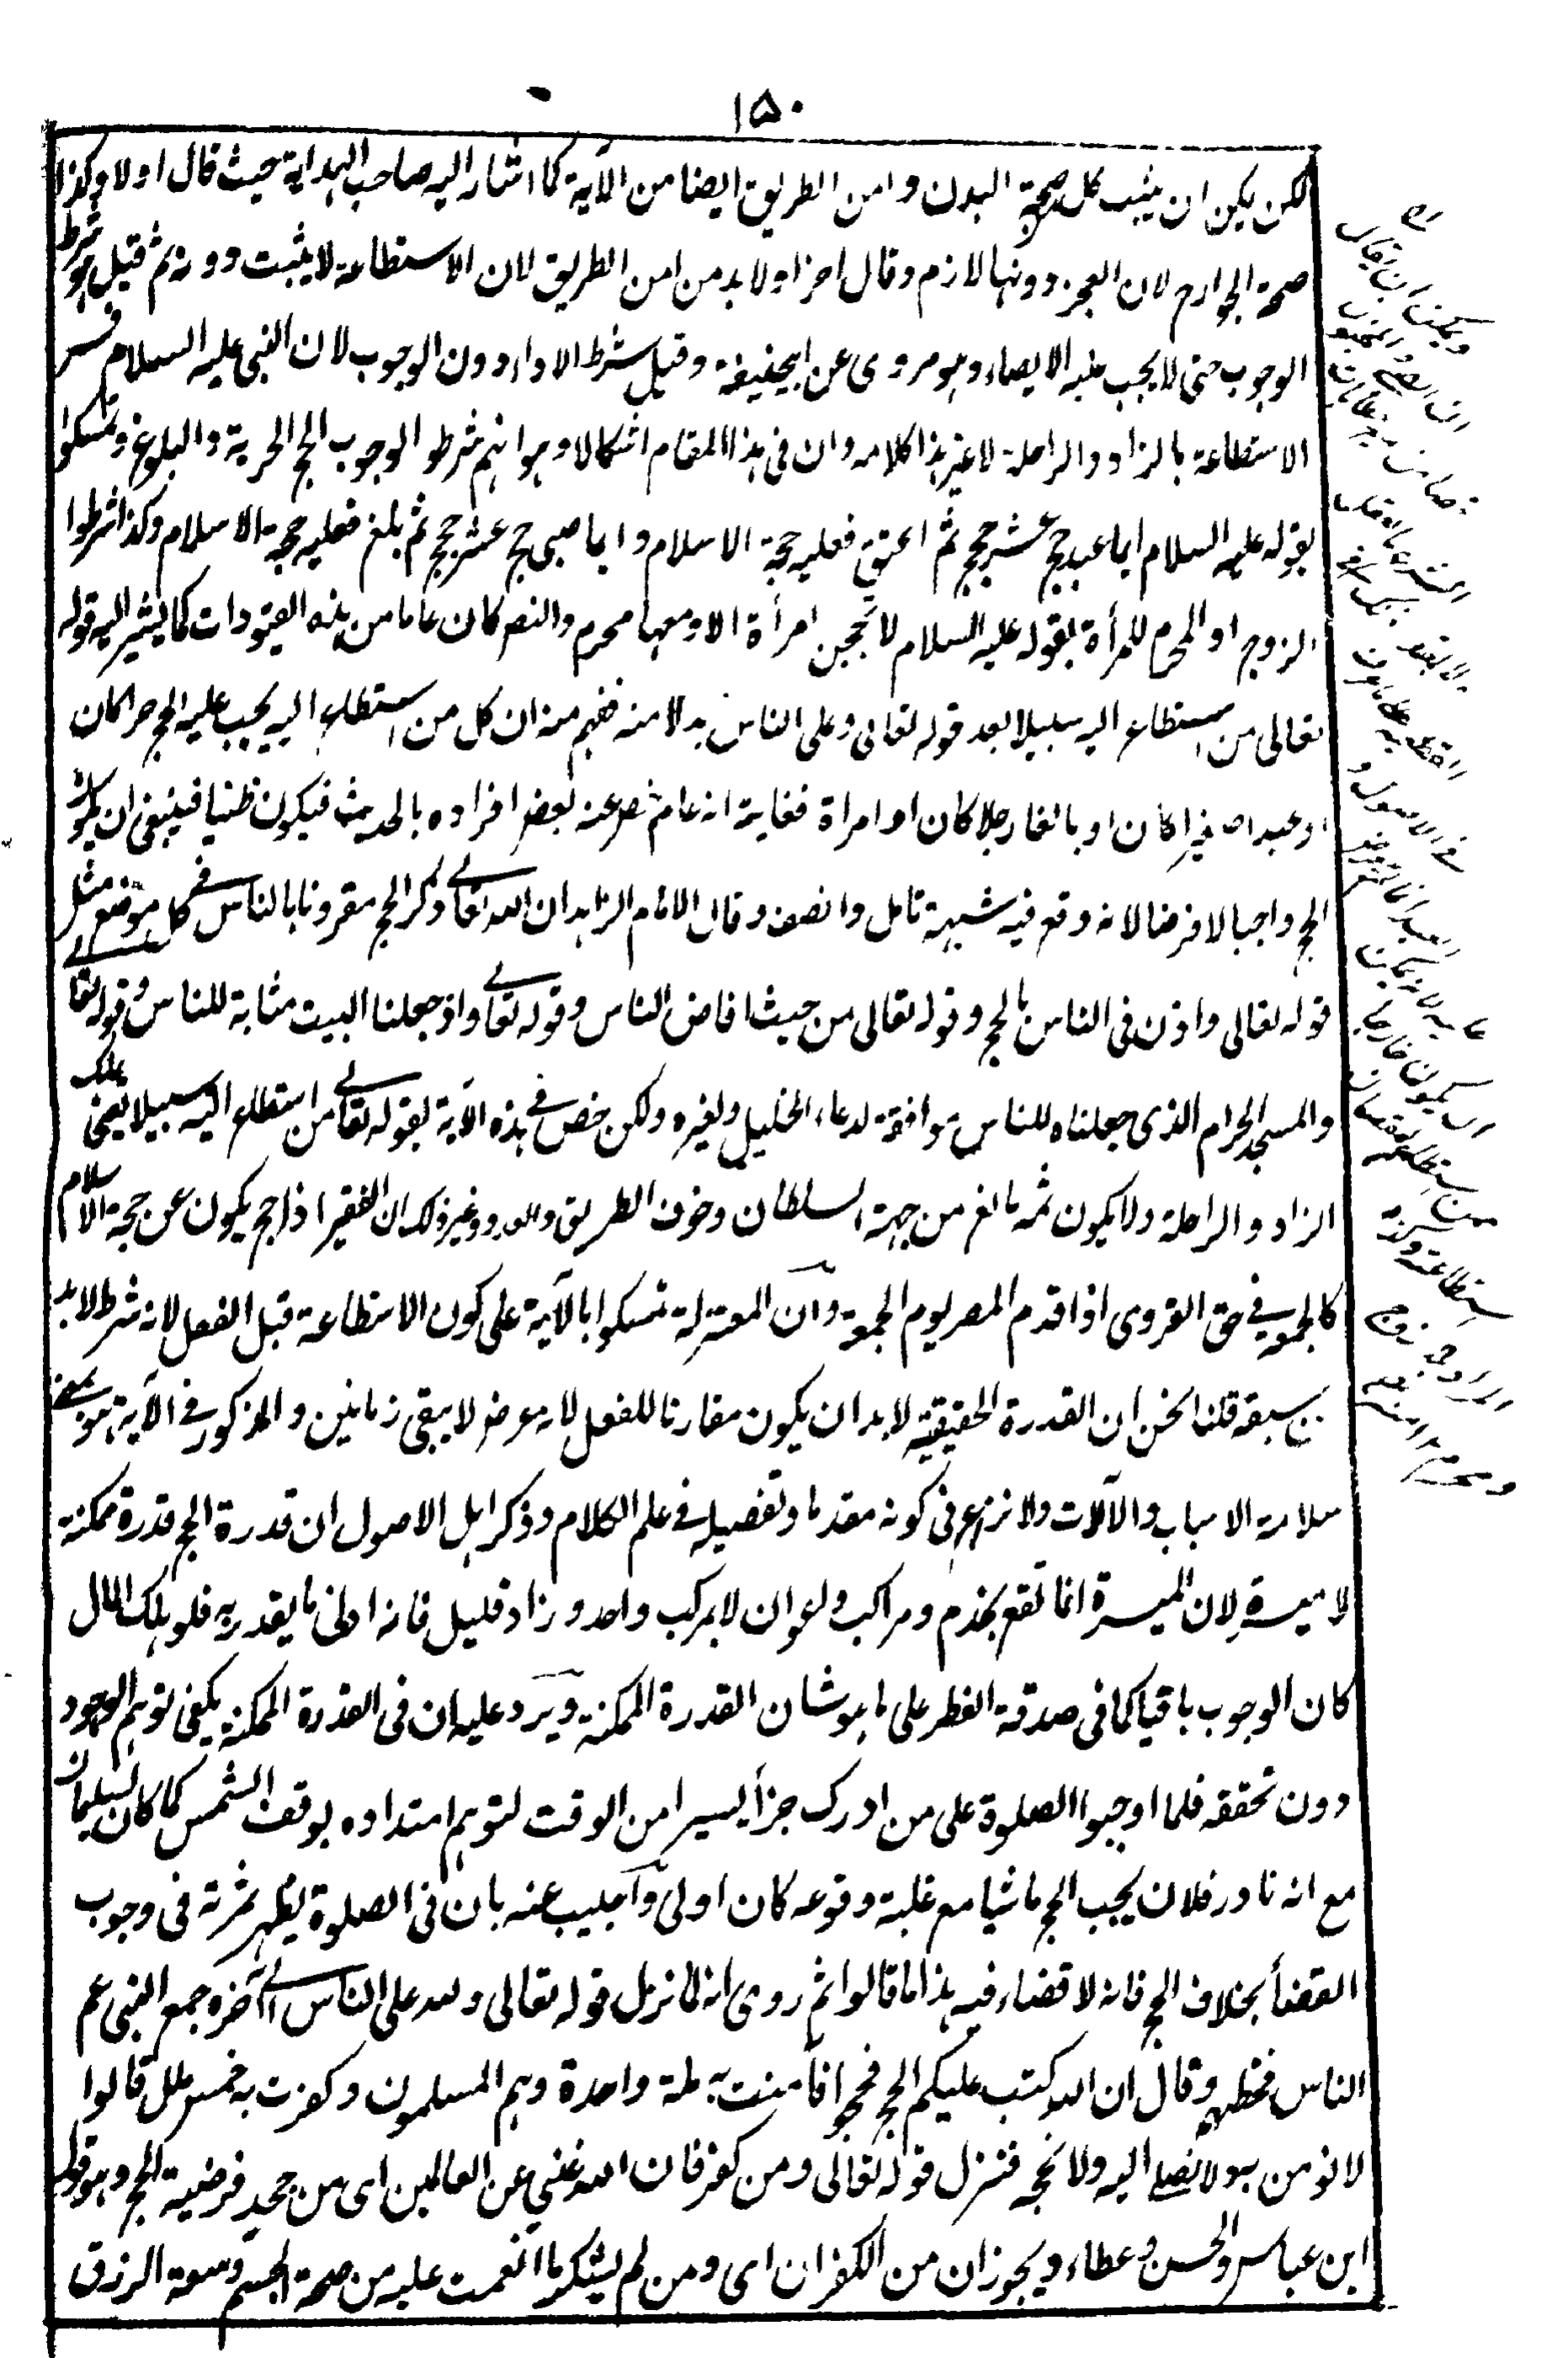 ١٥٠
لكن يمكن ان يثبت كل صحة البدن وامن الطريق ايضا من الآية كما اشار اليه صاحب الهداية حيث قال اولا وكذا
صحة الجوارح لان العجز دونها لازم وقال اخرا ولا بد من امن الطريق لان الاستطاعة لا يثبت دونه ثم قيل هو شرط
الوجوب حتى لا يجب عليه الايصاء وهو مروى عن ابيحنيفة وقيل شرط الاداء دون الوجوب لان النبى عليه السلام فسر
الاستطاعة بالزاد والراحلة لا غير هذا كلامه وان فى هذا المقام اشكالا وهو انهم شرطوا لوجوب الحج الحرية والبلوغ وتمسكوا
بقوله عليه السلام ايما عبد حج عشر حجج ثم اعتق فعليه حجة الاسلام وايما صبى حج عشر حجج ثم بلغ فعليه حجة الاسلام وكذا شرطوا
الزوج او المحرم للمرأة بقوله عليه السلام لا تحجن امرأة الا ومعها محرم والنص كان عاما من هذه القيودات كما يشير اليه قوله
تعالى من استطاع اليه سبيلا بعد قوله تعالى وعلى الناس بدلا منه ففهم منه ان كل من استطاع اليه يجب عليه الحج حرا كان
او عبدا صغيرا كان او بالغا رجلا كان او امراة فغايته انه عام خص عنه بعض افراده بالحديث فيكون ظنيا فينبغى ان يكون
الحج واجبا لا فرضا لانه وقع فيه شبهة تامل وانصف وقال الامام الزاهد ان الله تعالى ذكر الحج مقرونا بالناس فى كل موضع مثل
قوله تعالى واذن فى الناس بالحج وقوله تعالى من حيث افاض الناس وقوله تعالى واذ جعلنا البيت مثابة للناس وقوله تعالى
والمسجد الحرام الذى جعلناه للناس موافقة لدعاء الخليل ولغيره ولكن خص فى هذه الآية بقوله تعالى من استطاع اليه سبيلا يعنى ملك
الزاد والراحلة ولا يكون ثمه مانع من جهة السلطان وخوف الطريق والعدو وغير ذلك ان الفقير اذا حج يكون عن حجة الاسلام
كالجمعة فى حق القروى اذا قدم المصر يوم الجمعة وان المعتزلة تمسكوا بالآية على كون الاستطاعة قبل الفعل لانه شرط لا بد
من سبقه قلنا نحن ان القدرة الحقيقية لا بد ان يكون مقارنا للفعل لانه عرض لا يبقى زمانين والمذكور فى الآية هو بمعنى
سلامة الاسباب والآلات ولا نزاع فى كونه مقدما وتفصيله فى علم الكلام وذكر اهل الاصول ان قدرة الحج قدرة ممكنة
لا ميسرة لان الميسرة انما تقع بخدم ومراكب واعوان لا بمركب واحد وزاد قليل فانه ادنى ما يقدر به فلو هلك المال
كان الوجوب باقيا كما فى صدقة الفطر على ما هو شان القدرة الممكنة ويرد عليه ان فى القدرة الممكنة يكفى توهم الوجود
دون تحققه فلما اوجبوا الصلوة على من ادرك جزأ يسيرا من الوقت لتوهم امتداده بوقف الشمس كما كان لسليمان
مع انه نادر فلان يجب الحج ماشيا مع غلبة وقوعه كان اولى واجيب عنه بان فى الصلوة يظهر ثمرته فى وجوب
القضأ بخلاف الحج فانه لا قضاء فيه هذا ما قالوا ثم روى انه لما نزل قوله تعالى ولله على الناس الى آخره جمع النبى عم
الناس فخطبهم وقال ان الله كتب عليكم الحج فحجوا فآمنت به ملة واحدة وهم المسلمون وكفرت به خمس ملل قالوا
لا نؤمن به ولا نصلى اليه ولا نحجه فنزل قوله تعالى ومن كفر فان الله غنى عن العالمين اى من جحد فرضية الحج وهو قول
ابن عباس والحسن وعطاء ويجوز ان من الكفران اى ومن لم يشكر ما انعمت عليه من صحة الجسم وسعة الرزق
ويمكن ان يقال